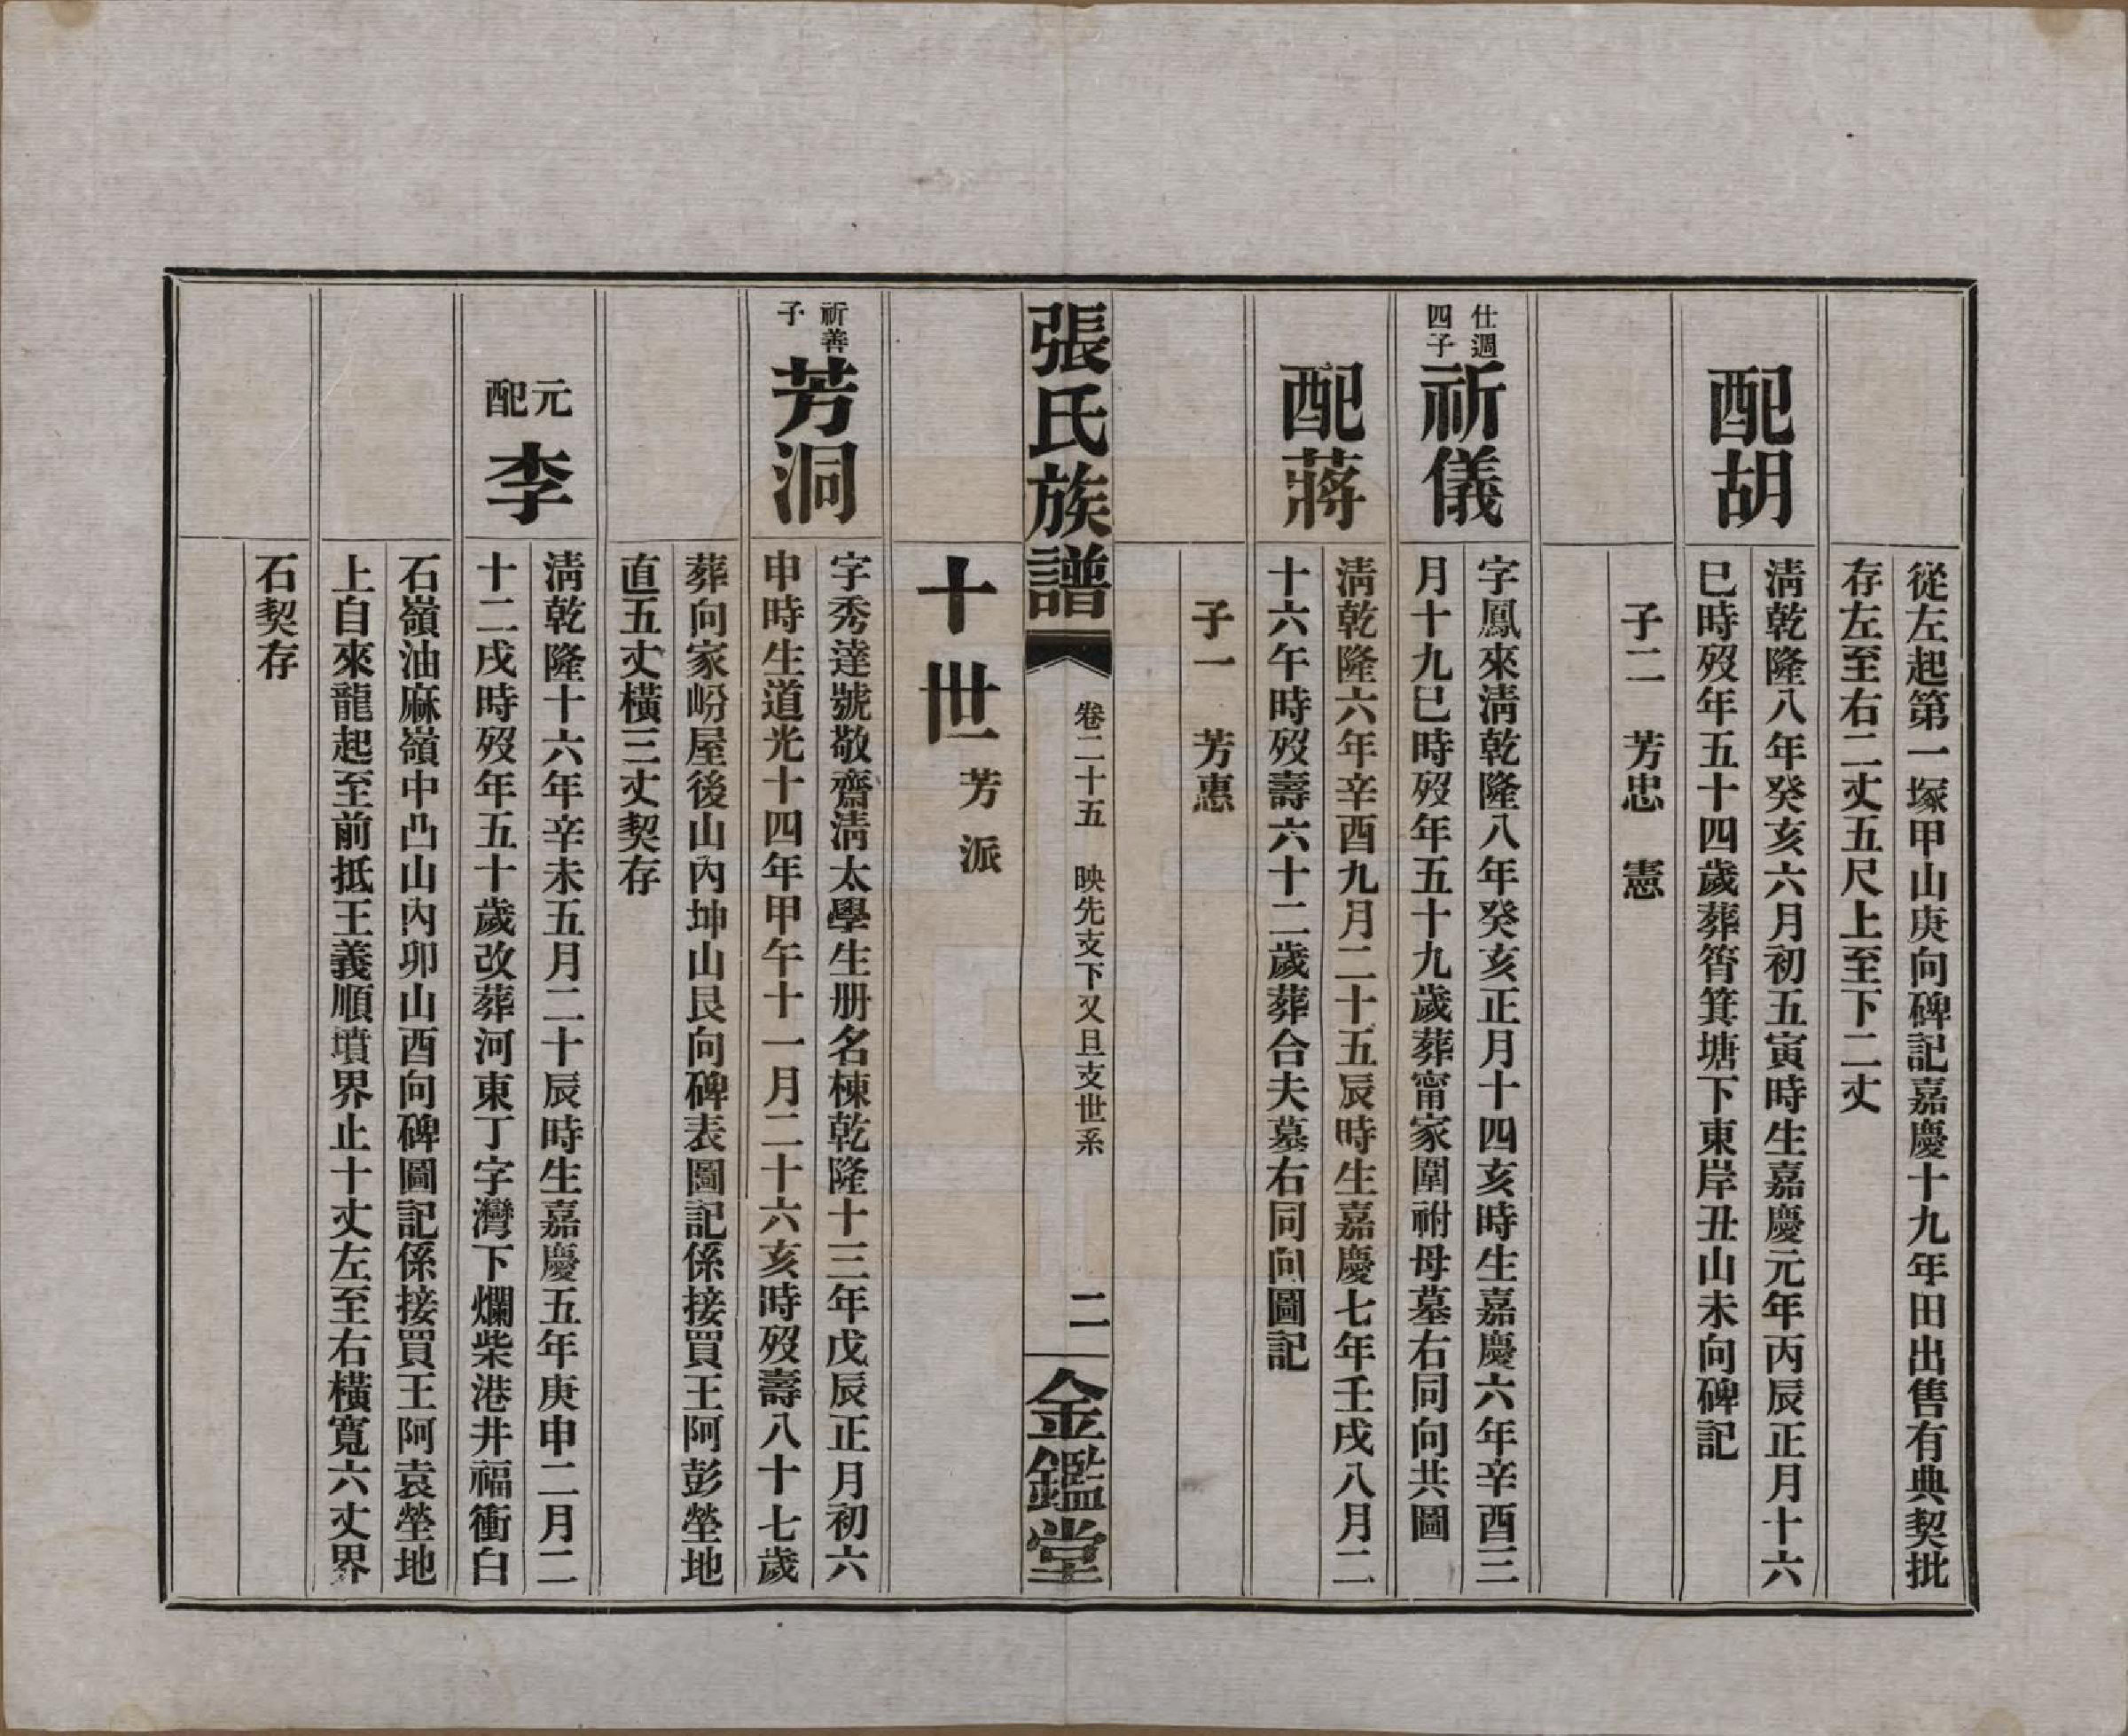 從左起第一塚甲山庚向碑記嘉慶十九年田出售有典契批
存左至右二丈五尺上至下二丈
配胡
清乾隆八年癸亥六月初五寅時生嘉慶元年丙辰正月十六
巳時歿年五十四歲葬筲箕塘下東岸丑山未向碑記
子二　芳忠　憲
仕週
四子
祈儀
字鳳來清乾隆八年癸亥正月十四亥時生嘉慶六年辛酉三
月十九巳時歿年五十九歲葬甯家圍祔母墓右同向共圖
配蔣
清乾隆六年辛酉九月二十五辰時生嘉慶七年壬戌八月二
十六午時歿壽六十二歲葬合夫墓右同向圖記
子一　芳惠
張氏族譜
卷二十五　映先支下又旦支世系
二
金鑑堂
十世
芳派
祈善
子
芳洞
字秀達號敬齋清太學生册名棟乾隆十三年戊辰正月初六
申時生道光十四年甲午十一月二十六亥時歿壽八十七歲
葬向家岎屋後山內坤山艮向碑表圖記係接買王阿彭塋地
直五丈橫三丈契存
元配
李
清乾隆十六年辛未五月二十辰時生嘉慶五年庚申二月二
十二戌時歿年五十歲改葬河東丁字灣下爛柴港井福衝白
石嶺油麻嶺中凸山內卯山酉向碑圖記係接買王阿袁塋地
上自來龍起至前抵王義順墳界止十丈左至右橫寬六丈界
石契存